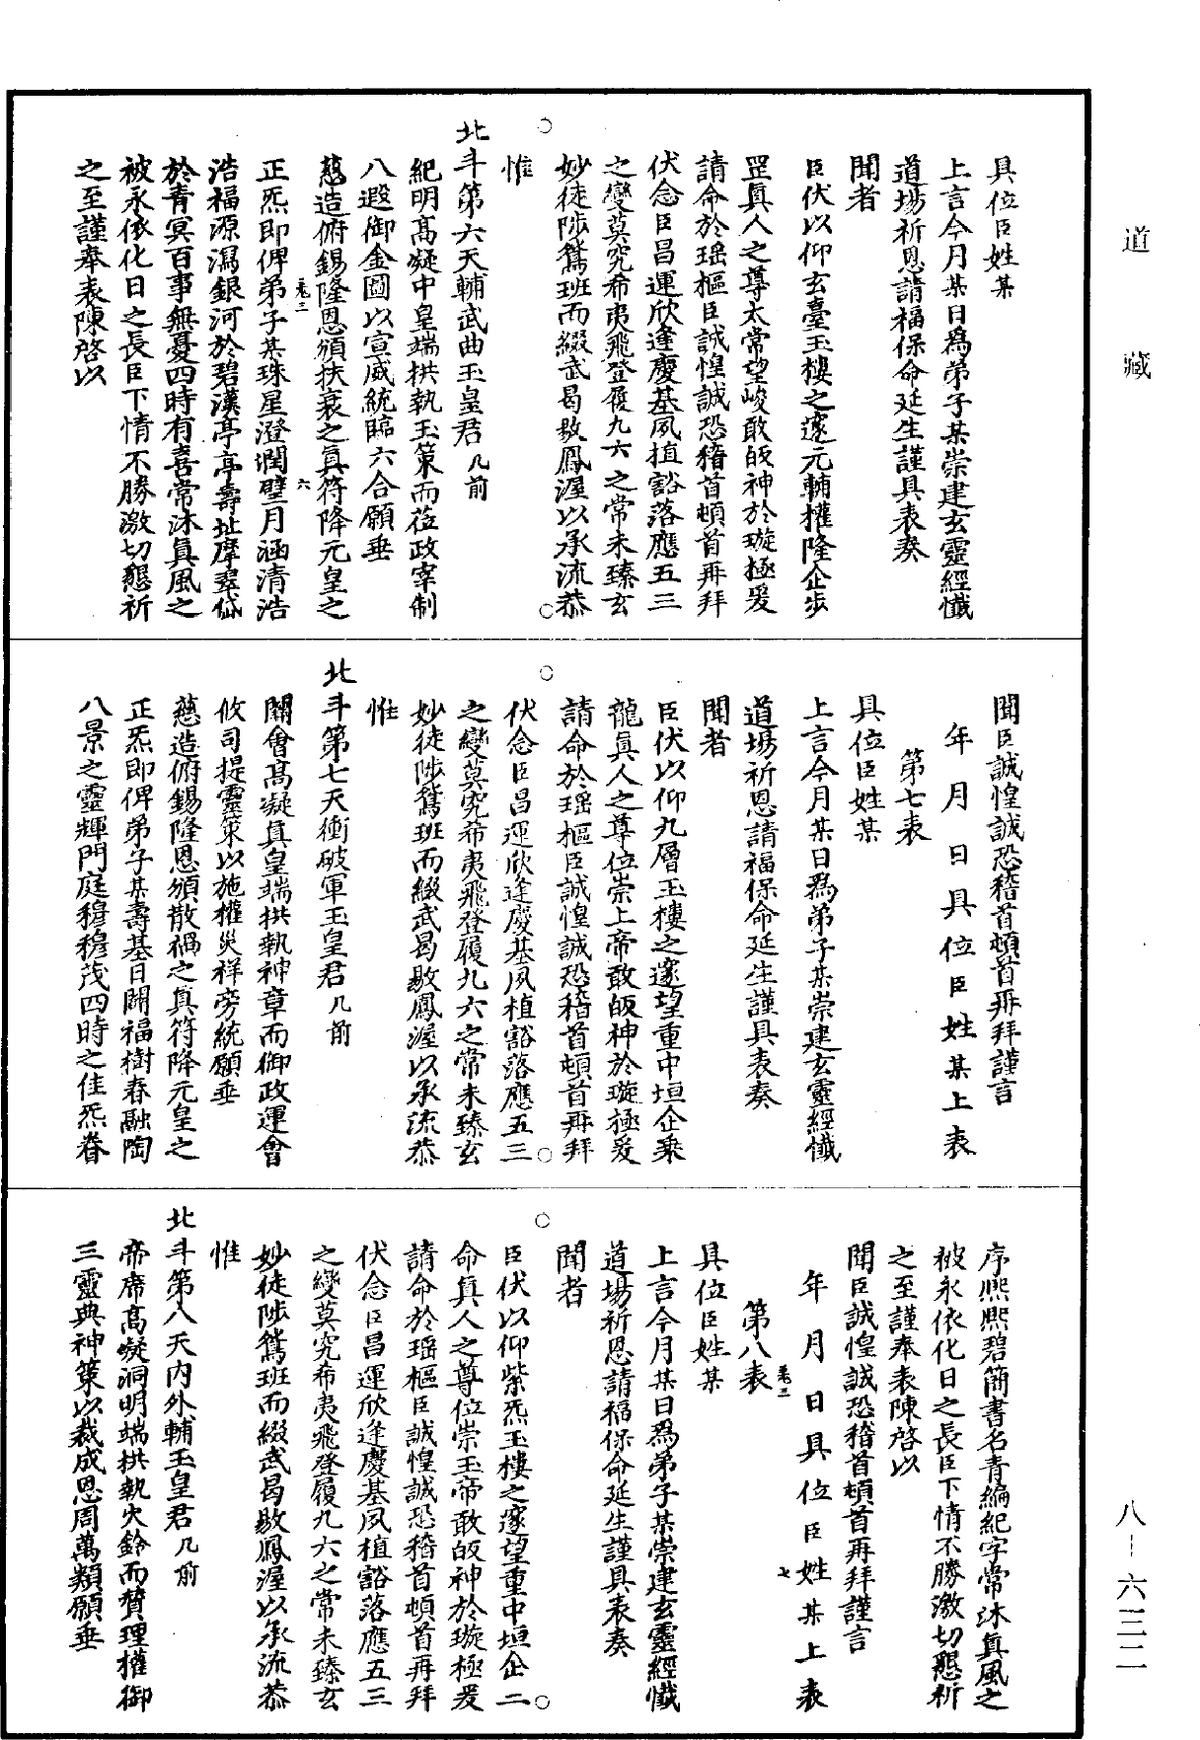 道藏
具位臣姓某
上言今月某日為弟子某崇建玄靈經懺
道場祈恩請福保命延生謹具表奏
聞者
臣伏以仰玄臺玉樓之邃元輔權隆企步
罡眞人之尊太常望峻敢皈神於璇極爰
請命於瑶樞臣誠惶誠恐稽首頓首再拜
伏念臣昌運欣逢慶基夙植豁落應五三
之變莫究希夷飛登履九六之常未臻玄
妙徒陟鵞班而綴武曷敭鳳渥以承流恭
惟
北斗第六天輔武曲玉皇君几前
紀明髙凝中皇端拱執玉策而莅政宰制
八遐御金圖以宣威統臨六合願垂
慈造俯錫隆恩頒扶衰之眞符降元皇之
卷三 六
正炁即俾弟子某珠星澄潤璧月涵清浩
浩福源瀉銀河於碧漢亭亭壽址摩翠岱
於青冥百事無憂四時有喜常沐眞風之
被永依化日之長臣下情不勝激切懇祈
之至謹奉表陳啓以
聞臣誠惶誠恐稽首頓首再拜謹言
年月日具位臣姓某上表
第七表
具位臣姓某
上言今月某日為弟子某崇建玄靈經懺
道場祈恩請福保命延生謹具表奏
聞者
臣伏以仰九層玉樓之邃望重中垣企乗
龍眞人之尊位崇上帝敢皈神於璇極爰
請命於瑶樞臣誠惶誠恐稽首頓首再拜
伏念臣昌運欣逢慶基夙植豁落應五三
之變莫究希夷飛登履九六之常未臻玄
妙徒陟鵞班而綴武曷敭鳳渥以承流恭
惟
北斗第七天衝破軍玉皇君几前
關會髙凝眞皇端拱執神章而御政運會
攸司提靈策以施權災祥旁統願垂
慈造俯錫隆恩頒散禍之眞符降元皇之
正炁即俾弟子某壽基日闢福樹春融陶
八景之靈輝門庭穆穆茂四時之佳炁眷
序熈熈碧簡書名青編紀字常沐眞風之
被永依化日之長臣下情不勝激切懇祈
之至謹奉表陳啓以
聞臣誠惶誠恐稽首頓首再拜謹言
年月日具位臣姓某上表
卷三 七
第八表
具位臣姓某
上言今月某日為弟子某崇建玄靈經懺
道場祈恩請福保命延生謹具表奏
聞者
臣伏以仰紫炁玉樓之邃望重中垣企二
命眞人之尊位崇玉帝敢皈神於璇極爰
請命於瑶樞臣誠惶誠恐稽首頓首再拜
伏念臣昌運欣逢慶基夙植豁落應五三
之變莫究希夷飛登履九六之常未臻玄
妙徒陟鵞班而綴武曷敭鳳渥以承流恭
惟
北斗第八天内外輔玉皇君几前
帝席髙凝洞明端拱執火鈴而賛理權御
三靈典神策以裁成恩周萬類願垂
八—六三二